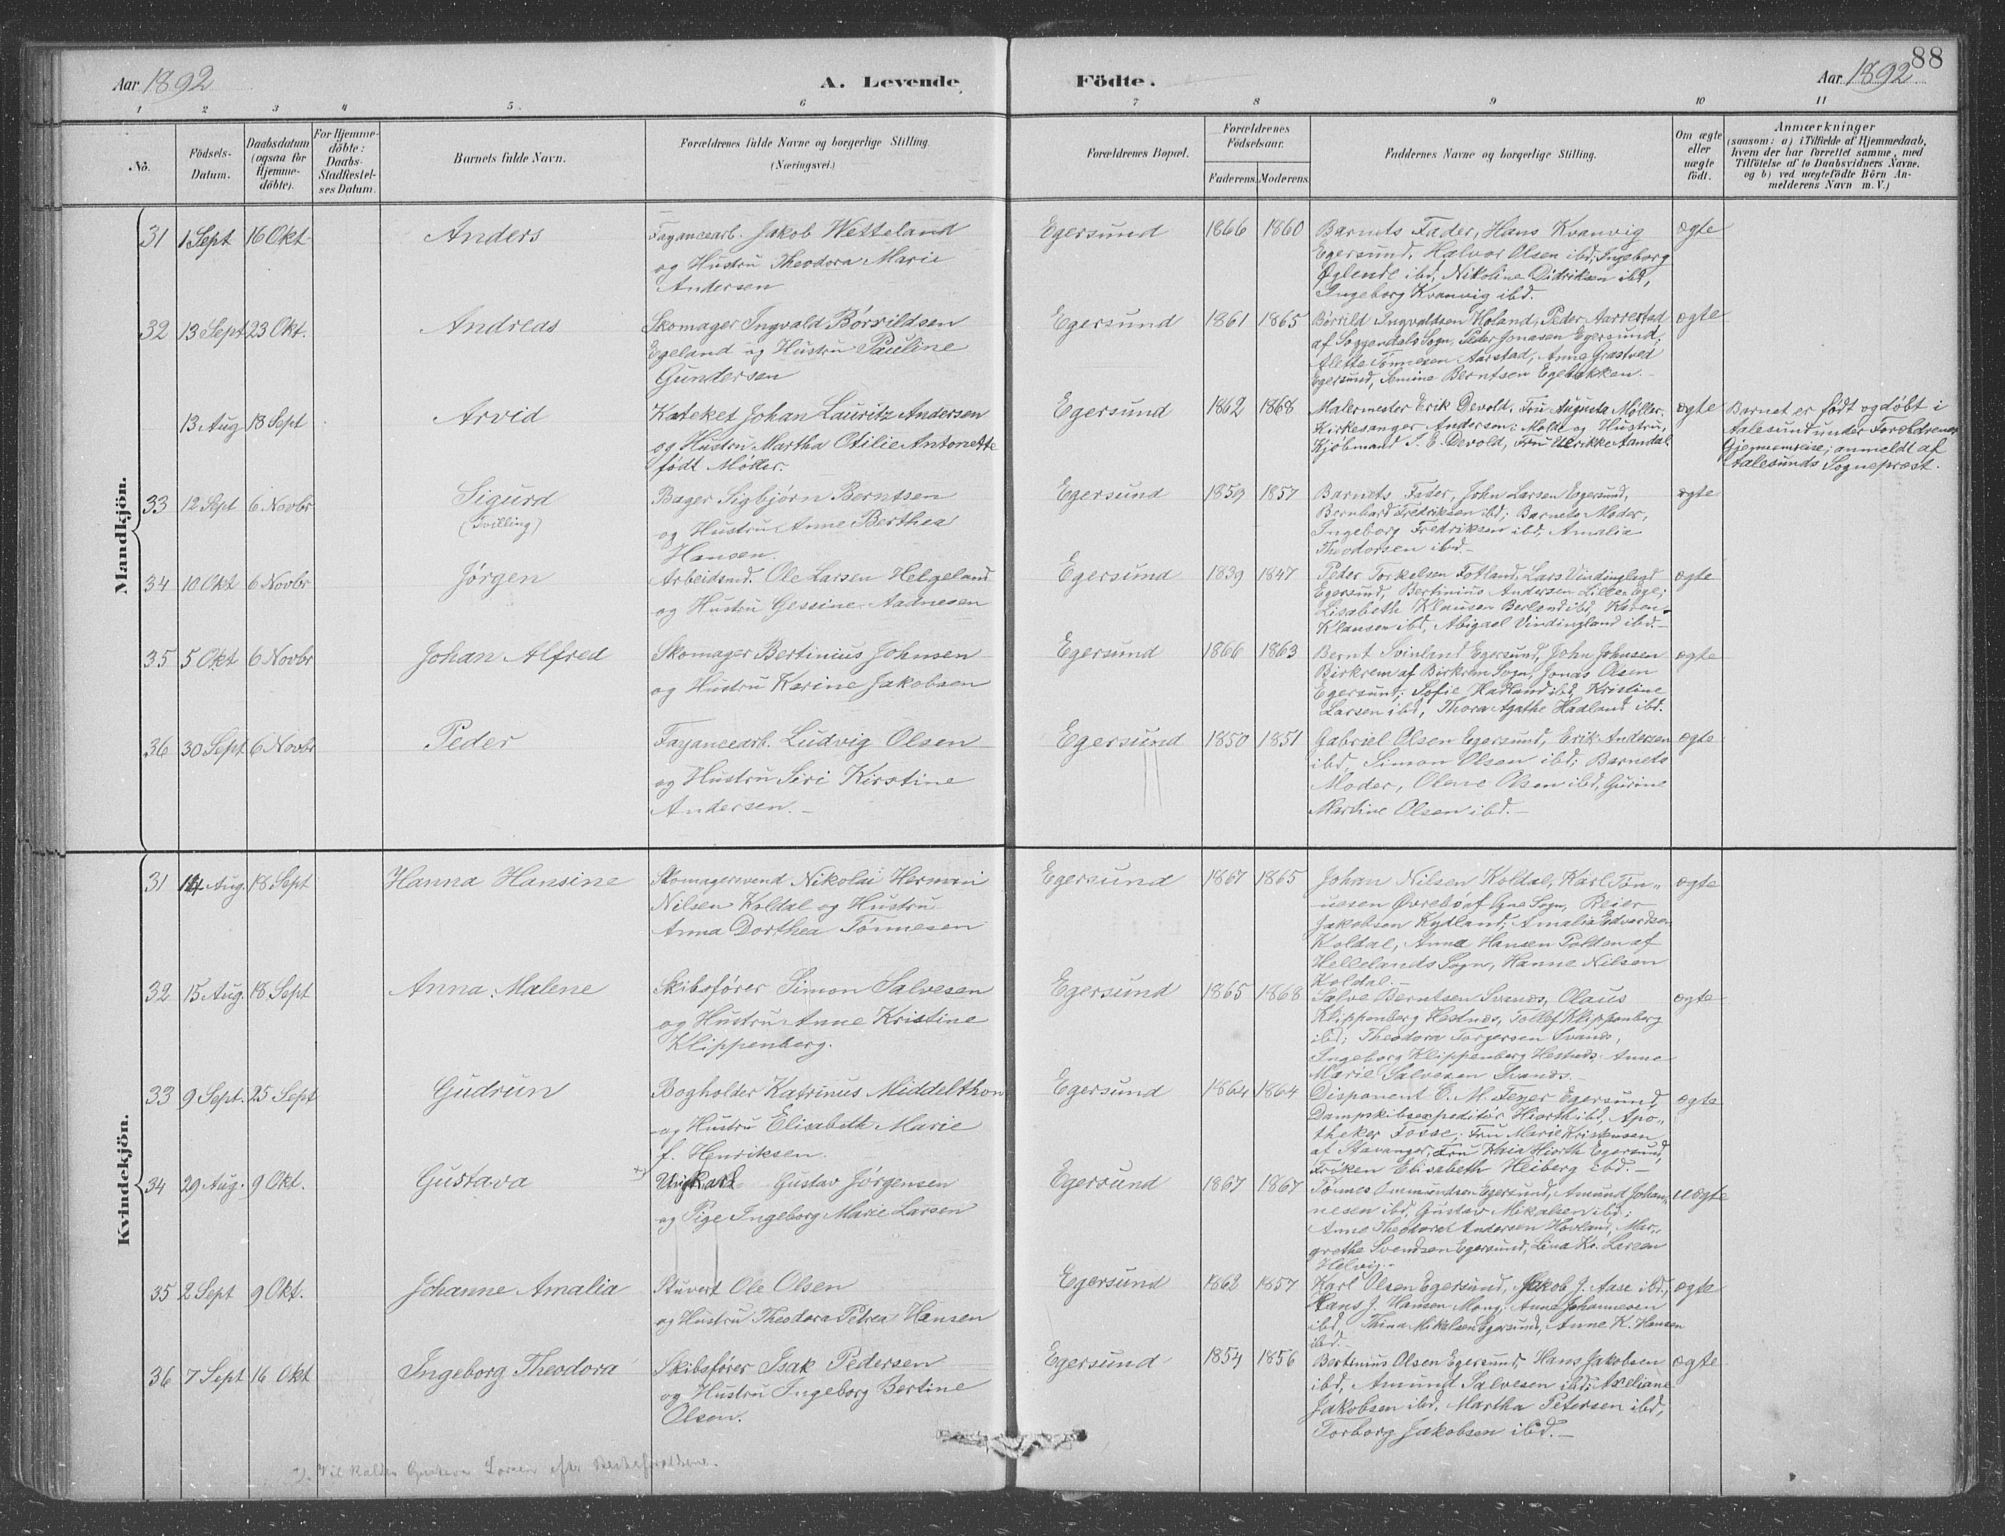 88
Aar 1892
A. Levende
Födte.
Aar 1892
1 2 3 4 5 6 7 8 9 10 11
No.
Födsels-Datum.
Daabsdatum (ogsaa for Hjemme-döbte).
For Hjemme-döbte: Daabs-Stadfæstel-ses Datum.
Barnets fulde Navn.
Forældrenes fulde Navne og borgerlige Stilling.
(Næringsvei.)
Forældrenes Bopæl.
Forældrenes Födselsaar.
Faderens. Moderens.
Faddernes Navne og borgerlige Stilling.
Om ægte eller uægte födt.
Anmærkninger
(saasom: a) i Tilfælde af Hjemmedaab,
hvem der har forrettet samme, med
Tilföielse af to Daabsvidners Navne,
og b) ved uægtefödte Börn An-
melderens Navn m. V.)
Mandkjön.
31 1 Sept 16 Okt. Anders
Fayancearb. Jakob Wetteland
og Hustru Theodora Marie
Andersen
Egersund 1866 1860
Barnets Fader, Hans Kvanvig
Egersund, Halvor Olsen ibd; Ingeborg
Øglende ibd, Nikoline Didriksen ibd,
Ingeborg Kvanvig ibd.
ægte
32 13 Sept 23 Okt. Andreas
Skomager Ingvald Børrildsen
Egeland og Hustru Pauline
Gundersen
Egersund 1861 1865
Børrild Ingvaldsen Høland, Peder Aarrestad
af Soggendals Sogn, Peder Jonasen Egersund;
Alette Tønnesen Aarstad, Anna Græsteid
Egersund, Semine Berntsen Egebakken.
ægte
13 Aug 18 Sept Arvid
Kateket Johan Lauritz Andersen
og Hustru Martha Otilie Antonette
født Møller.
Egersund 1862 1868
Malermester Erik Devold, Fru Augusta Møller,
Kirkesanger Andersen: Molde og Hustru,
Kjøbmand S. E. Devold, Fru Ulrikke Aandal.
ægte
Barnet er født og døbt i
Aalesund under Forældrenes
Gjennemreise; anmeldt af
Aalesunds Sognepræst.
33 12 Sept 6 Novbr Sigurd
(Tvilling)
Bager Sigbjørn Berntsen
og Hustru Anne Berthea
Hansen.
Egersund 1859 1857
Barnets Fader, John Larsen Egersund,
Bernhard Fredriksen ibd; Barnets Moder,
Ingeborg Fredriksen ibd, Amalia
Theodorsen ibd.
ægte
34 10 Okt 6 Novbr Jørgen
Arbeidsmd. Ole Larsen Helgeland
og Hustru Gessine Aadnesen
Egersund 1839 1847
Peter Torkelsen Fotland, Lars Vindingland
Egersund, Bertinius Andersen Lille-Ege;
Lisabeth Klausen Berland ibd, Karen
Klausen ibd, Abigael Vindingland ibd.
ægte
35 5 Okt 6 Novbr Johan Alfred
Skomager Bertinius Johnsen
og Hustru Karine Jakobsen
Egersund 1866 1863
Bernt Svinland Egersund, John Johnsen
Birkrem af Birkrem Sogn, Jonas Olsen
Egersund; Sofie Hadland ibd, Kristine
Larsen ibd, Thora Agathe Hadland ibd.
ægte
36 30 Sept 6 Novbr Peder
Fayancearb. Ludvig Olsen
og Hustru Siri Kirstine
Andersen.
Egersund 1850 1851
Gabriel Olsen Egersund, Erik Andersen
ibd, Simon Olsen ibd; Barnets
Moder, Olene Olsen ibd, Gurine
Martine Olsen ibd.
ægte
Kvindekjön.
31 14 Aug. 18 Sept Hanna Hansine
Skomagersvend Nikolai Herman
Nilsen Koldal og Hustru
Anna Dorthea Tønnesen
Egersund 1867 1865
Johan Nilsen Koldal, Karl Tøn-
nesen Øvrebø af Sogn, Reier
Jakobsen Kydland; Amalia Edvardsen
Koldal, Anna Hansen Polden af
Hellelands Sogn, Hanne Nilsen
Koldal.
ægte
32 15 Aug. 18 Sept Anna Malene
Skibsfører Simon Salvesen
og Hustru Anne Kristine
Klippenberg.
Egersund 1865 1868
Salve Berntsen Svanes, Olaus
Klippenberg Hestnes, Tollef Klippenberg
ibd; Theodora Torgersen Svanes,
Ingeborg Klippenberg Hestnes, Anne
Marie Salvesen Svanes.
ægte
33 9 Sept. 25 Sept Gudrun
Bogholder Katrinus Middelthon
og Hustru Elisabeth Marie
f. Henriksen.
Egersund 1864 1864
Disponent C. M. Feyer Egersund,
Dampskibsexpeditør Hiorth ibd, Apo-
theker Fosse; Fru Marie Kristensen
af Stavanger, Fru Kaia Hiorth Egersund,
Frøken Elisabeth Heiberg ibd.
ægte
34 29 Aug. 9 Okt. Gustava
Ungkarl Gustav Jørgensen
og Pige Ingeborg Marie Larsen
Egersund 1867 1867
Tønnes Ommundsen Egersund, Amund Johan-
nesen ibd, Gustav Mikalsen ibd;
Anne Theodora Andersen Hovland, Mar-
grethe Svendsen Egersund, Lina Kr. Larsen
Helvig.
uægte
35 2 Sept 9 Okt. Johanne Amalia
Stuvert Ole Olsen
og Hustru Theodora Petrea Hansen
Egersund 1862 1857
Karl Olsen Egersund, Jakob J. Aase ibd,
Hans J. Hansen Mong, Anna Johannesen
ibd, Thina Mikalsen Egersund, Anne K. Hansen
ibd.
ægte
36 7 Sept 16 Okt Ingeborg Theodora
Skibsfører Isak Pedersen
og Hustru Ingeborg Bertine
Olsen.
Egersund 1854 1856
Bertinius Olsen Egersund, Hans Jakobsen
ibd, Amund Salvesen ibd; Axeliane
Jakobsen ibd, Martha Petersen ibd,
Torborg Jakobsen ibd.
ægte
Vil kaldes Gustava Larsen efter Bedsteforældrene.